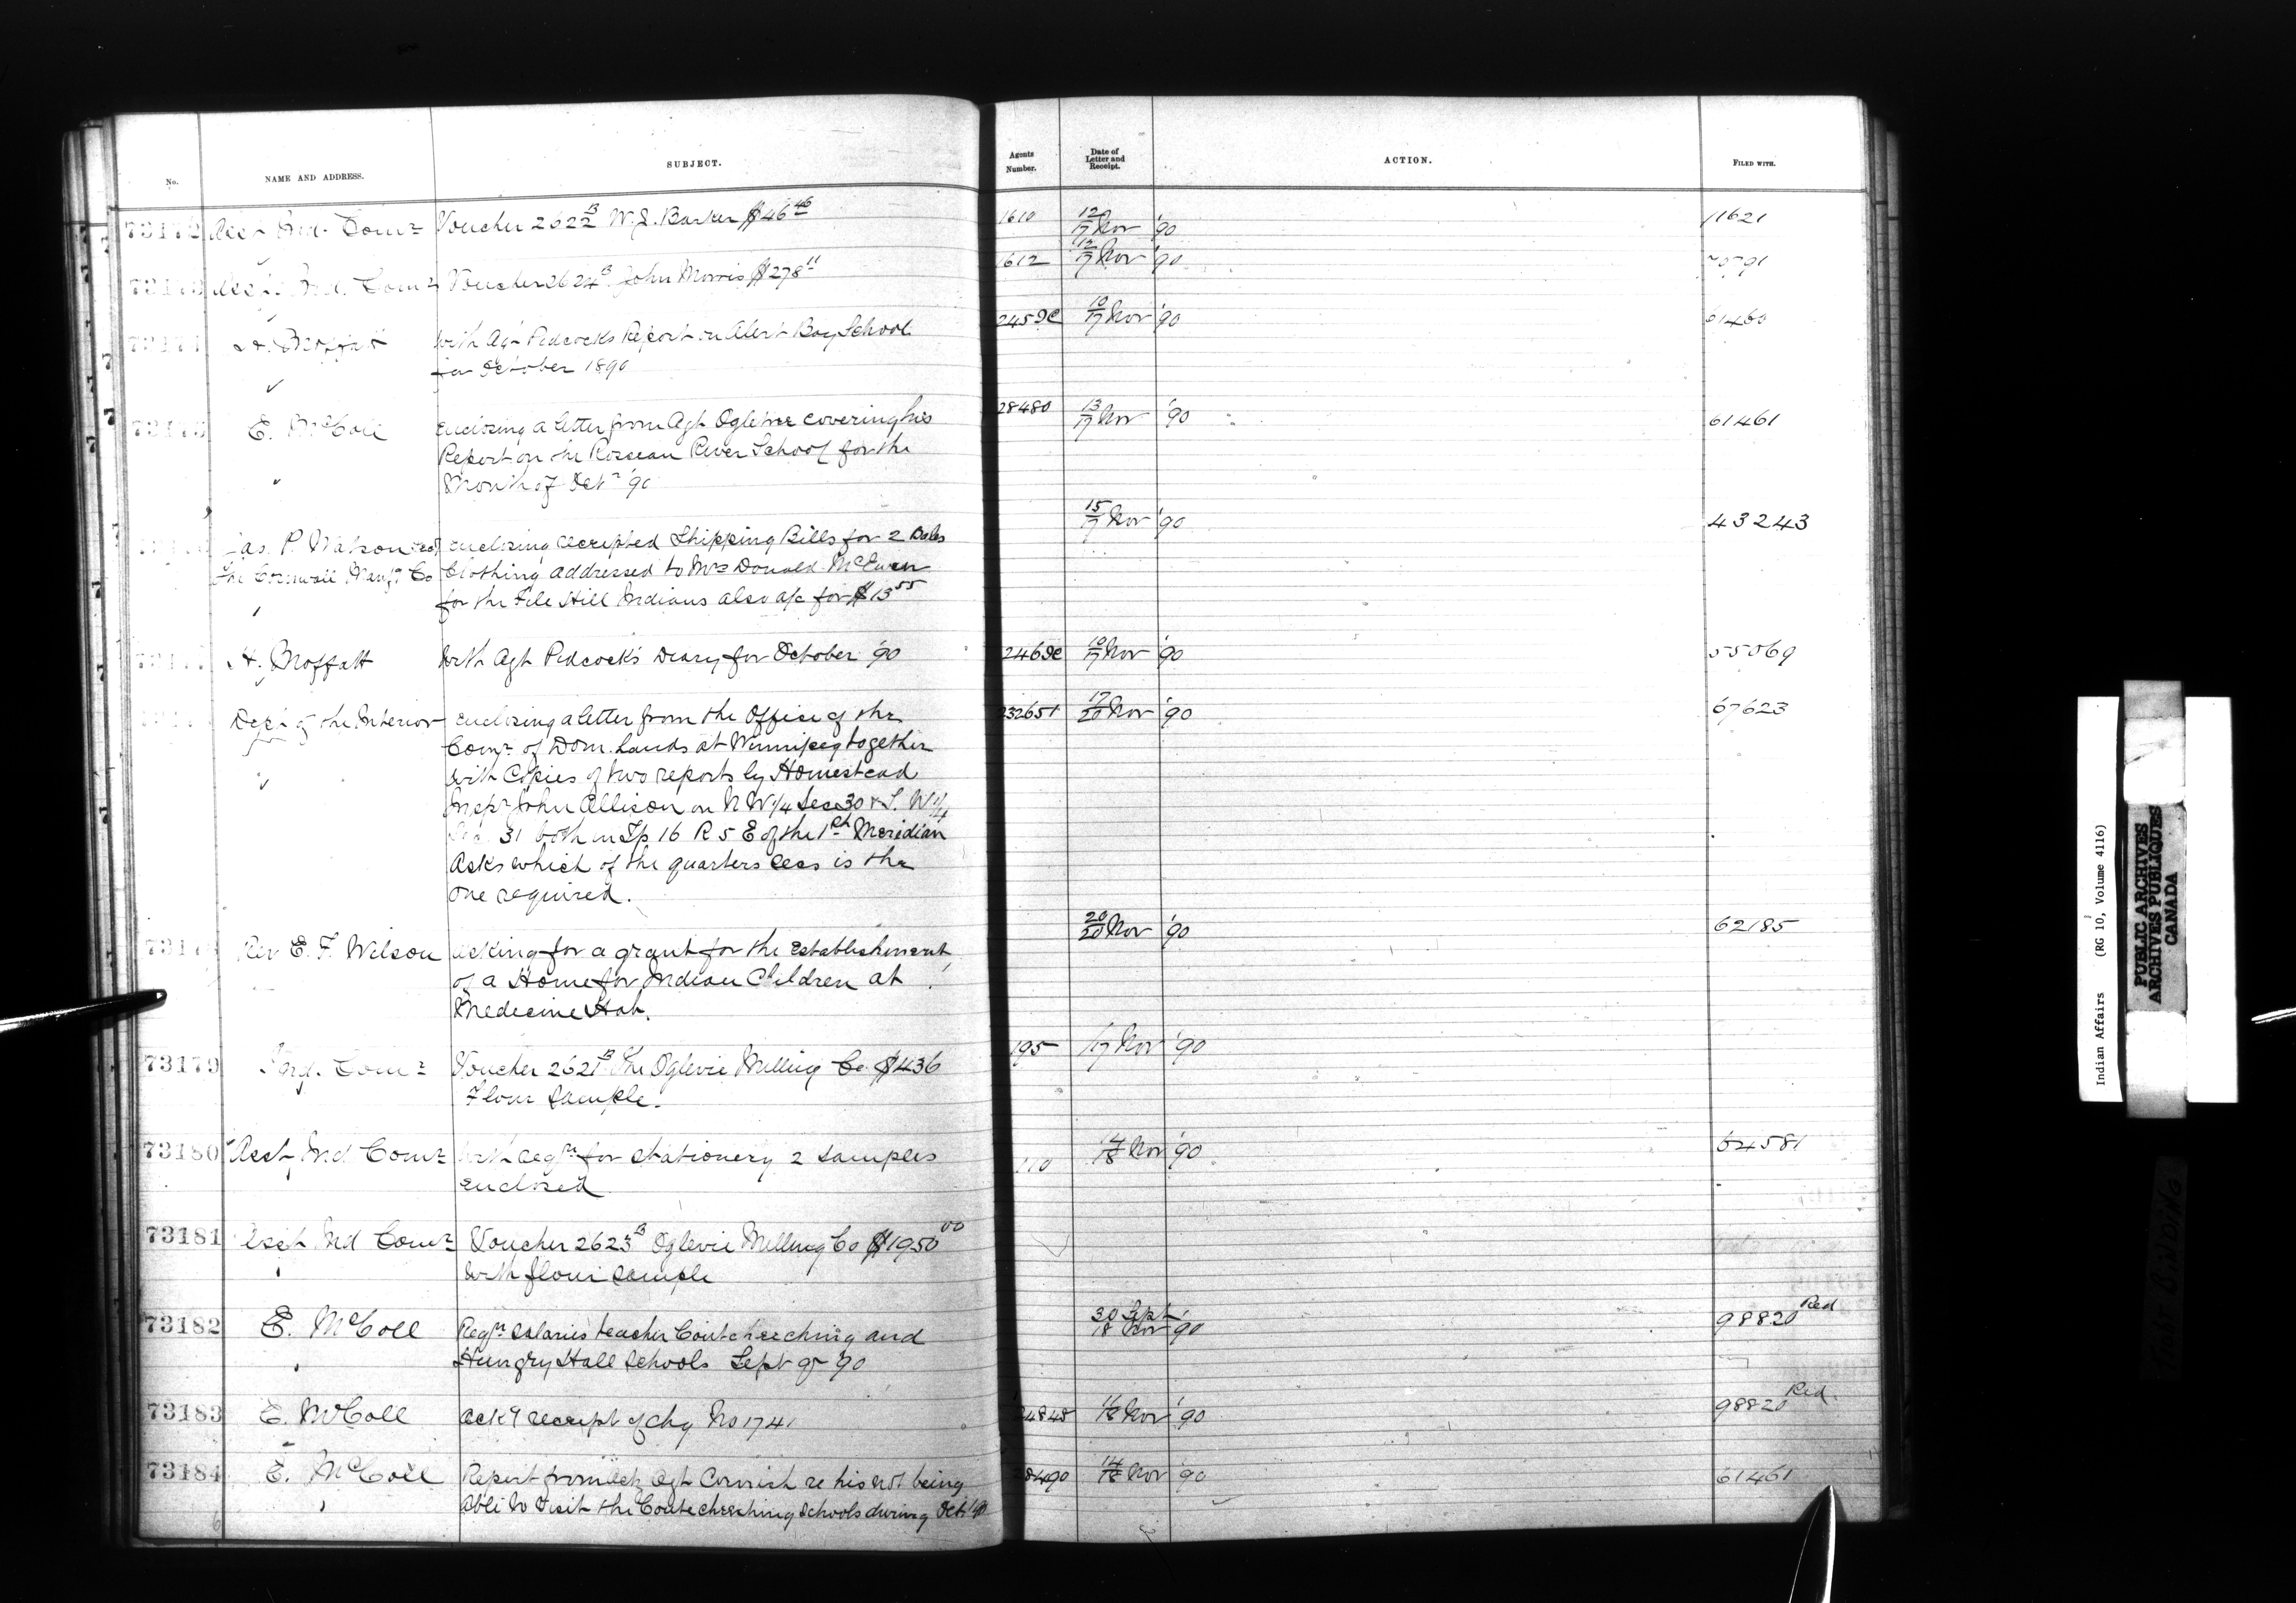 No. NAME AND ADDRESS. SUBJECT. Agents Number. Date of Letter and Receipt. ACTION. FILED WITH.
73172 Asst Ind. Comr Voucher 2622 B W. J. Barker $46 46 1610 12/17 Nov '90 11621
73173 Asst. Ind. Comr Voucher 2624 B John Morris $278 11 1612 12/17 Nov '90
H. Moffatt With Agt Pidcocks Report on Alert Bay School 10/17 Nov '90 61460
for October 1890
73175 E. McColl Enclosing a letter from Agt Ogletree covering his 28480 13/17 Nov '90 61461
Report on the Roseau River School for the
Month of Octr '90
Jas. P. Watson enclosing receipted Shipping Bills for 2 Bales 15/17 Nov '90 43243
The Cornwall Manfg Co Clothing addressed to Mrs Donald McEwen
for the File Hill Indians also a/c for $13 55
H. Moffatt With Agt Pidcock's Diary for October '90 10/17 Nov '90 55069
Dept of the Interior enclosing a letter from the Office of the 232651 17/20 Nov '90 67623
Comr of Dom. Lands at Winnipeg together
with Copies of two reports by Homestead
Inspr John Allison on N W 1/4 Sec 30 & S. W 1/4
Sec 31 both in Tp 16 R 5 E of the 1st Meridian
Asks which of the quarters secs is the
one required.
Rev E. F. Wilson asking for a grant for the establishment 20/20 Nov '90 62185
of a Home for Indian Children at
Medecine Hat.
73179 Ind. Comr Voucher 2621 B The Oglevie Milling Co. $436 195 17 Nov '90
Flour Sample.
73180 Asst Ind Comr With reqn for stationery 2 samples 110 14/18 Nov '90 64581
enclosed
73181 Asst Ind Comr Voucher 2623 B Oglevie Milling Co $1950 00
with flour sample
73182 E. McColl Reqn salaries teacher Coutcheeching and 30 Sept/18 Nov '90 98820 Red
Hungry Hall Schools Sept qr '90
73183 E. McColl Ack'g receipt of chq No 1741 18 Nov '90 98820 Red.
73184 E. McColl Report from Actg Agt Cornish re his not being 28490 14/18 Nov '90 61461
able to Visit the Coutcheeching Schools during Oct '90
Indian Affairs (RG 10, Volume 4116)
PUBLIC ARCHIVES
ARCHIVES PUBLIQUES
CANADA